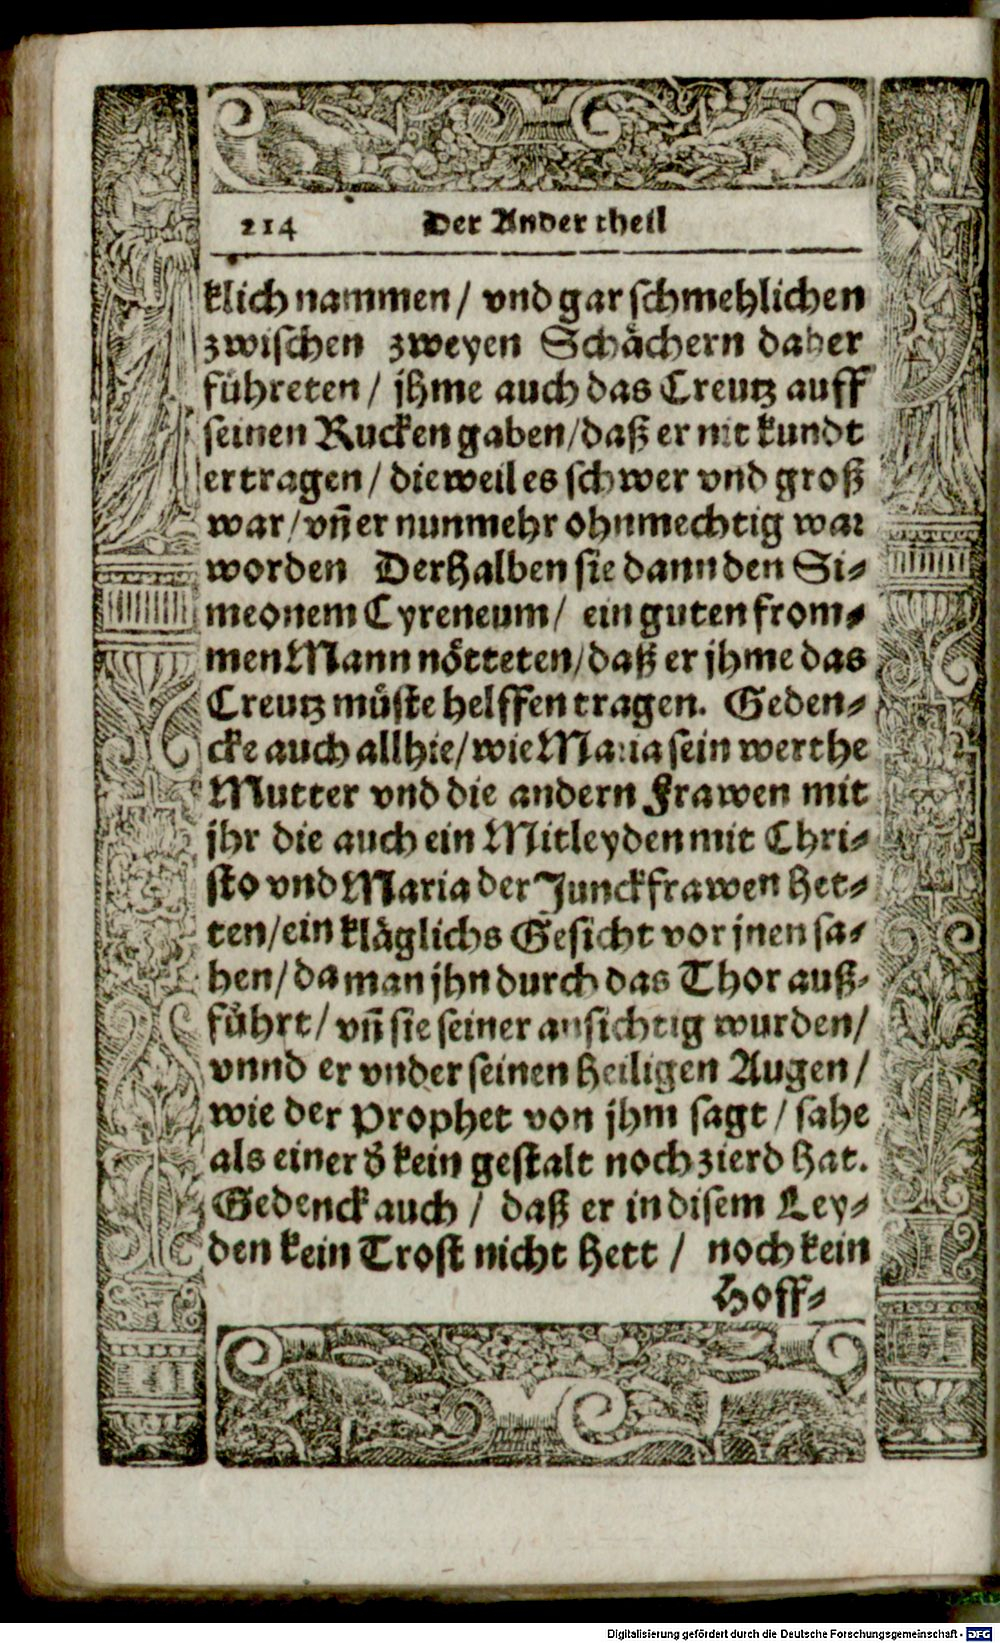 214 Der Ander theil
klich nammen / vnd gar schmehlichen
zwischen zweyen Schächern daher
führeten / jhme auch das Creutz auff
seinen Rucken gaben / daß er nit kundt
ertragen / dieweil es schwer vnd groß
war / vñ er nunmehr ohnmechtig war
worden Derhalben sie dann den Si-
meonem Cyreneum / ein guten from-
men Mann nötteten / daß er jhme das
Creutz müste helffen tragen. Geden-
cke auch allhie / wie Maria sein werthe
Mutter vnd die andern Frawen mit
jhr die auch ein Mitleyden mit Chri-
sto vnd Maria der Junckfrawen het-
ten / ein kläglichs Gesicht vor jnen sa-
hen / da man jhn durch das Thor auß-
führt / vñ sie seiner ansichtig wurden /
vnnd er vnder seinen heiligen Augen /
wie der Prophet von jhm sagt / sahe
als einer d̕ kein gestalt noch zierd hat.
Gedenck auch / daß er in disem Ley-
den kein Trost nicht hett / noch kein
Hoff-
Digitalisierung gefördert durch die Deutsche Forschungsgemeinschaft - DFG